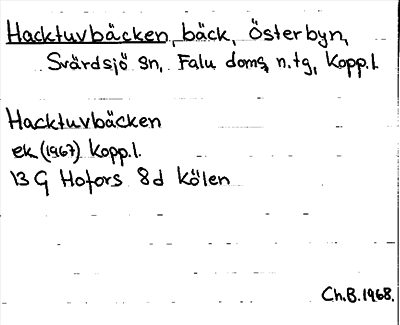 Hacktuvbäcken, bäck, Österbyn,
Svärdsjö sn, Falu doms, n.tg, Kopp.l.
Hacktuvbäcken
ek. (1967) Kopp.l.
13 G Hofors 8d Kölen
Ch.B.1968.